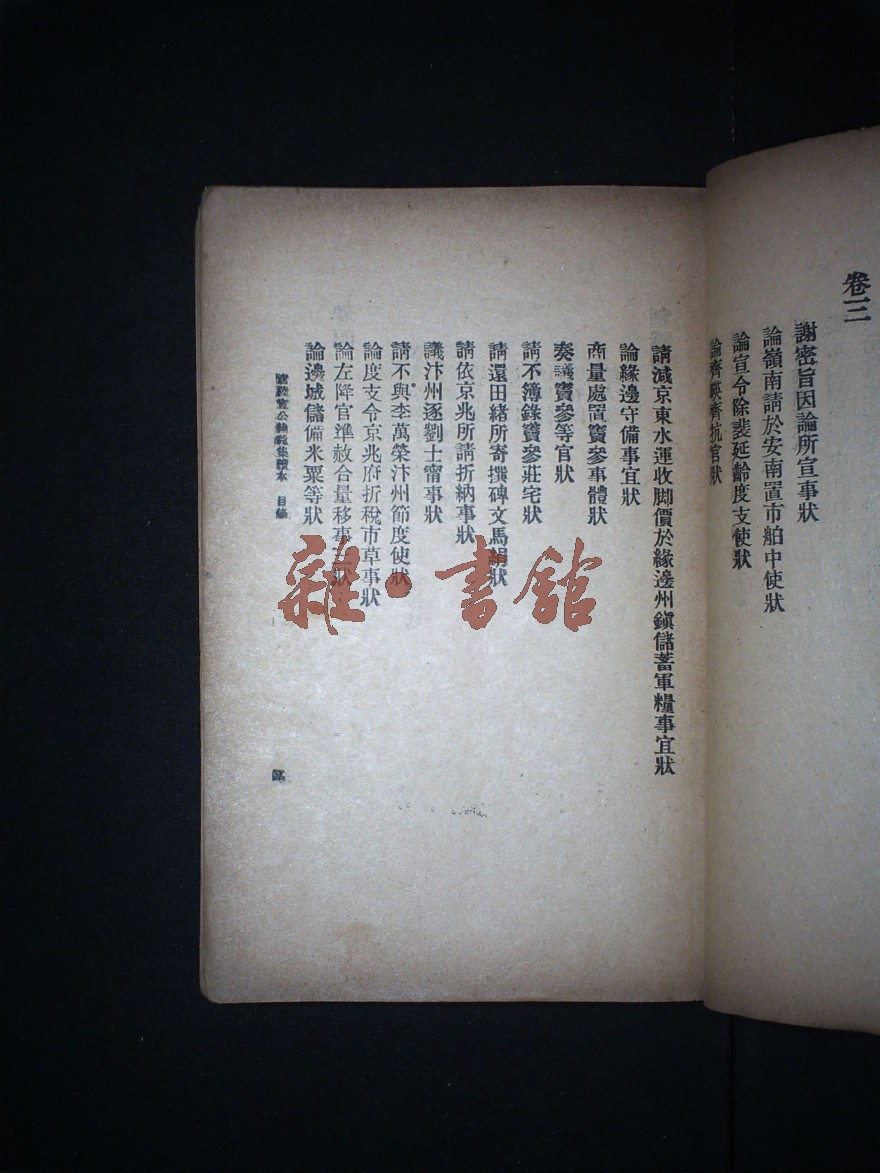 卷三
謝密旨因論所宣事狀
論嶺南請於安南置市舶中使狀
論宣令除裴延齡度支使狀
論齊映齊抗官狀
請減京東水運收脚價於緣邊州鎭儲蓄軍糧事宜狀
論緣邊守備事宜狀
商量處置竇參事體狀
奏議竇參等官狀
請不簿錄竇參莊宅狀
請還田緒所寄撰碑文馬絹狀
請依京兆所請折納事狀
議汴州逐劉士甯事狀
請不與李萬榮汴州節度使狀
論度支令京兆府折稅市草事狀
論左降官準赦合量移事三狀
論邊城儲備米粟等狀
陸宣公 集讀本 目錄
雜·書館